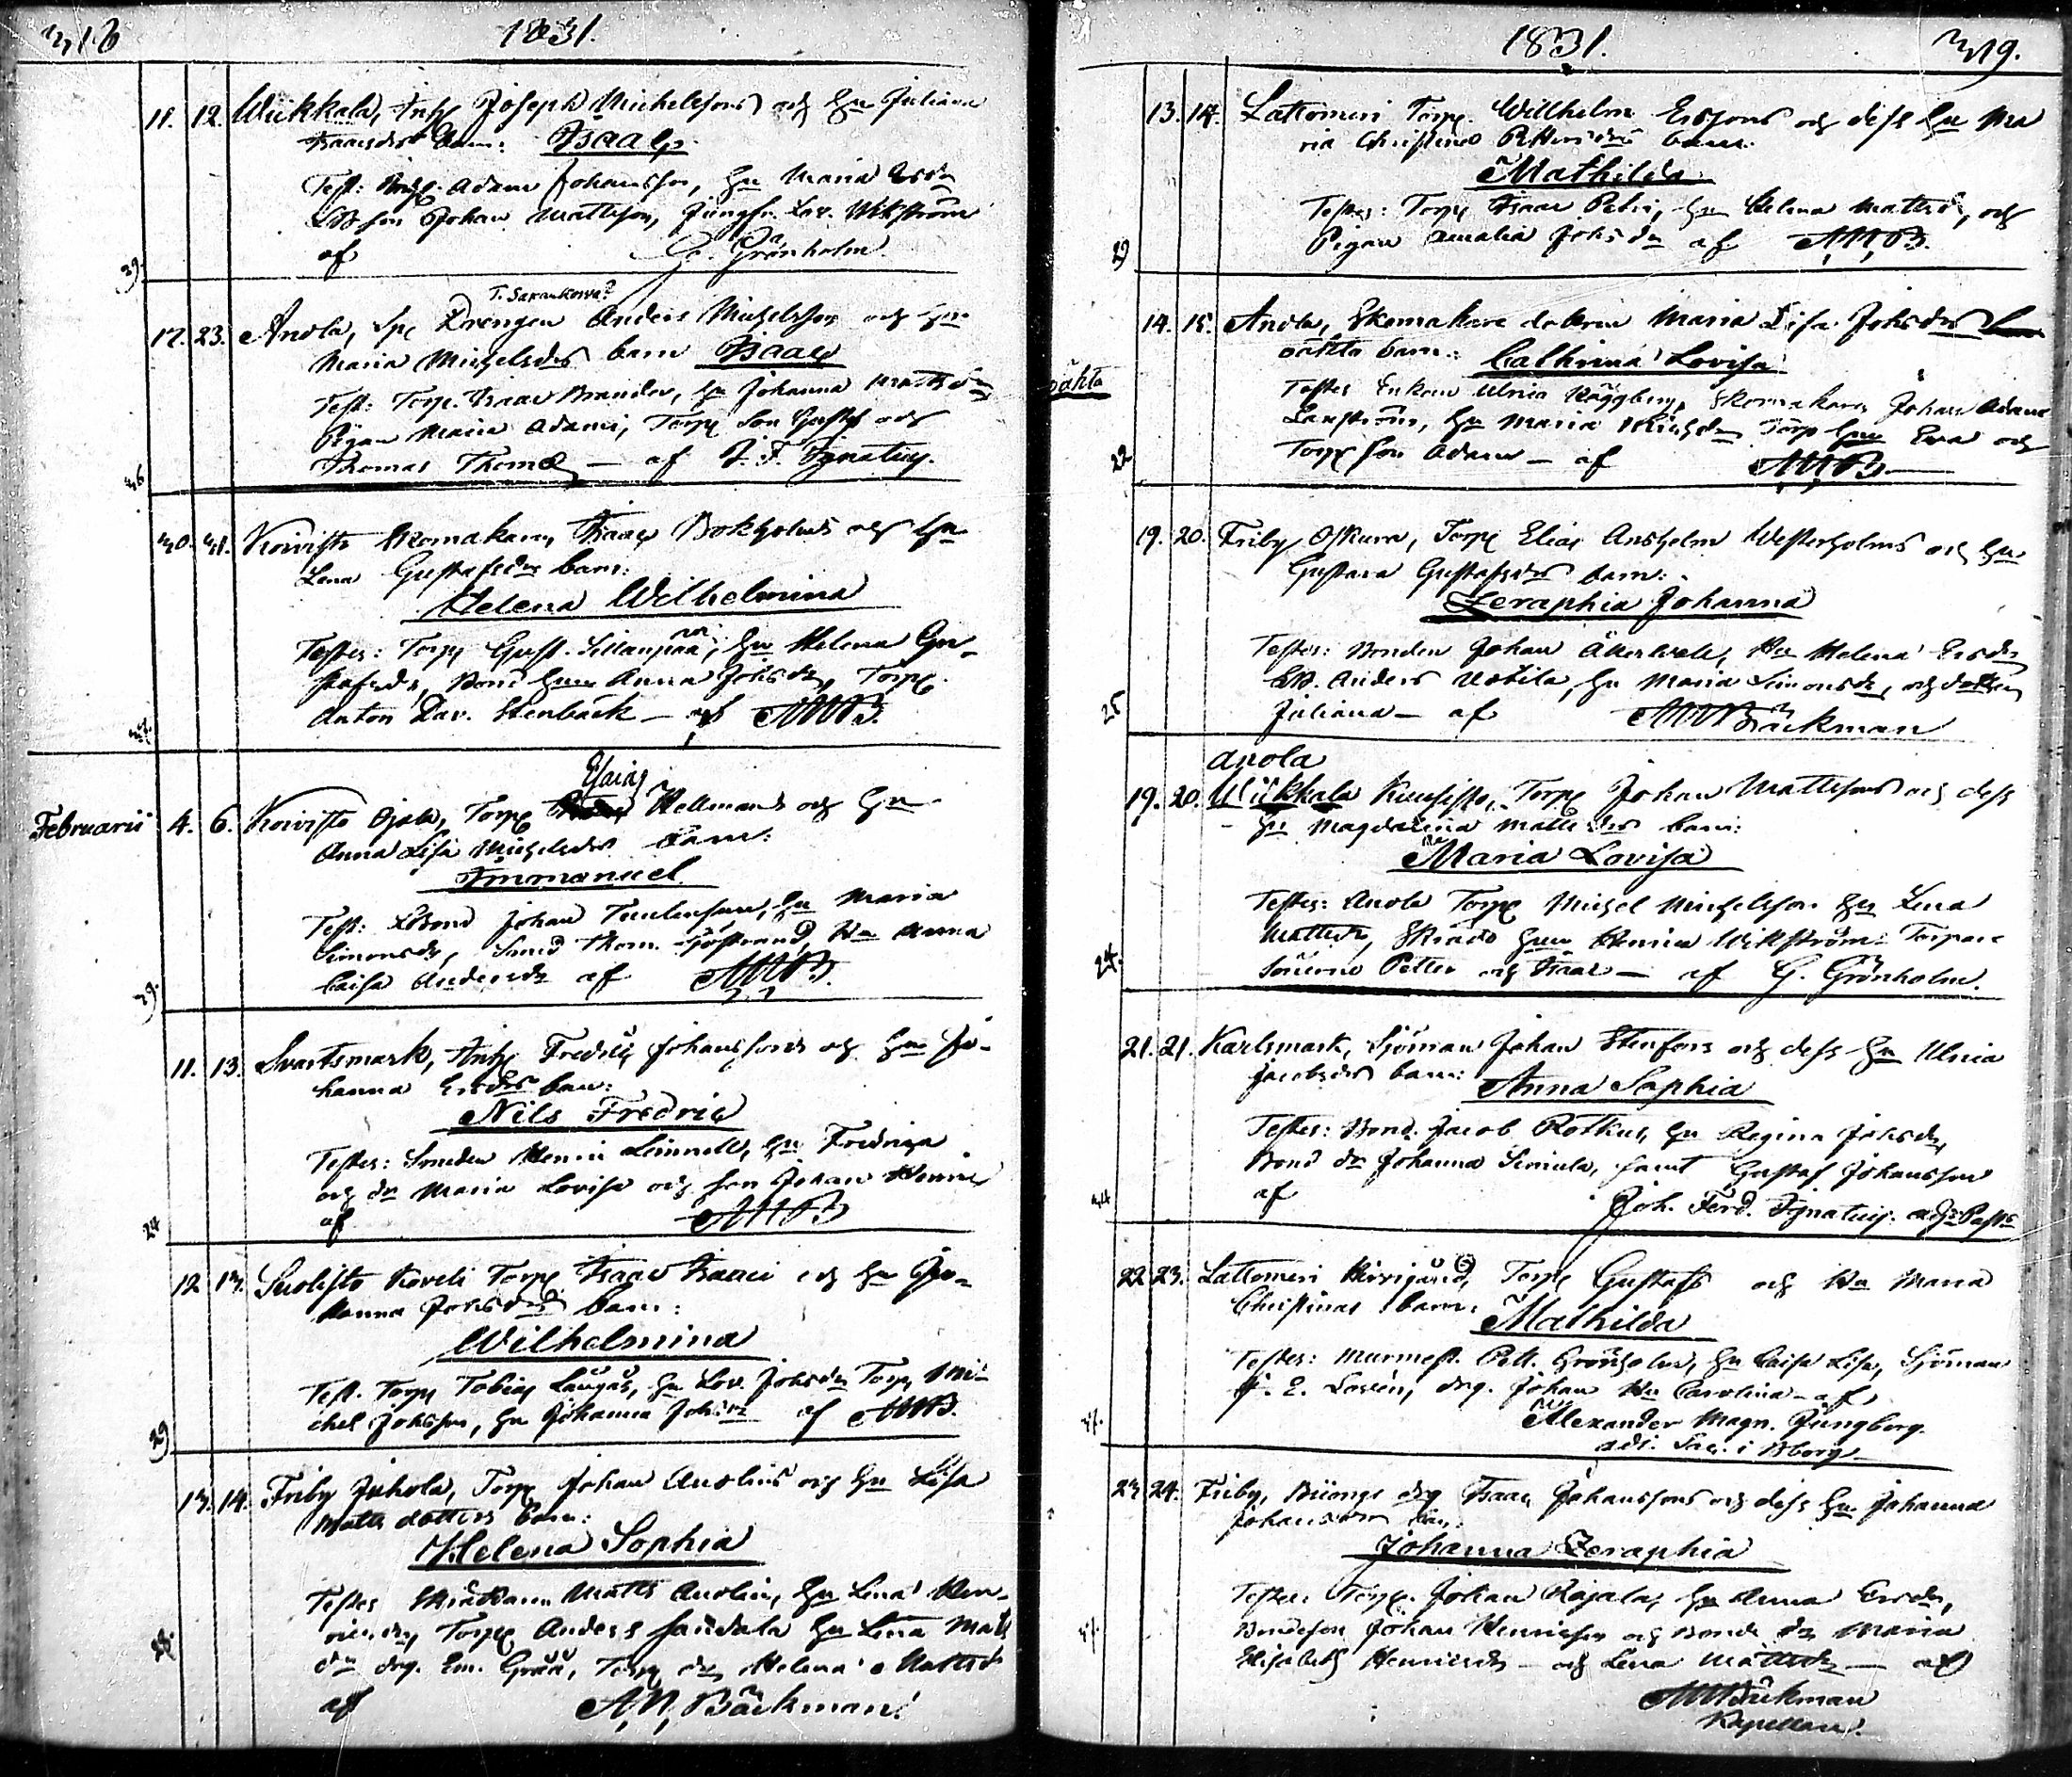 318 1831.
11. 12. Wiikkala, Inh. Joseph Michelsons och hu Juliana
Isaacsdrs barn: Isaac.
Test: Adam Johansson, hu Maria Ersdr
Johan Mattsson, Jungfr. Lov. Wikström
af G. Grönholm.
39.
T. Saxankorva?
17. 23. Anola, Sp. Drengen Anders Michelsson och hu
Maria Michelsdrs barn Isaac
Test: Torp. Isaac Brander, hu Johanna Mattsdr
Pigan Maria Adami, Torp. Son Gustaf och
Thomas Thomæ — af J. F. Ignatius.
36
30. 31. Koivisto Skomakaren Isaac Bokholms och hu
Lena Gustafsdrs barn:
Helena Wilhelmina
Testes: Torp. Gust. Sillanpää, hu Helena Gu-
stafsdr, Bond hun Anna Johsdr, Torp.
Anton Dav. Stenbäck — af AMB.
Februarii 4. 6. Koivisto Ojala, Torp. Esaias Hellmans och hu
Anna Lisa Michelsdrs barn:
Immanuel
Test: Johan, hu Maria
Simonsdr, Smed Thom. Sjöstrand, Hu Anna
Caisa Andersdr af AMB.
39.
11. 13. Svartsmark, Inh. Fredric Johanssons och hu Jo-
hanna Ersdrs barn:
Nils Fredric
Testes: Smeden Henric Linnell, hu Fredrica
och dr Maria Lovisa och son Johan Henric
af AMB
24
12 13. Suolisto Koveli Torp. Isaac Isaaci och hu Jo-
hanna Johsdrs barn:
Wilhelmina
Test. Torp. Tobias Laugas, hu Lov. Johsdr Torp. Mi-
chel Johsson, hu Johanna Johsdr af AMB.
29
13. 14. Friby Juhola, Torp. Johan Anolins och hu Lisa
Matts dotters barn:
Helena Sophia
Testes Skräddaren Matts Anolin, hu Lena Hen-
ricsdr, Torp. Anders Jaudala hu Lena Matts
dr drg. Em. Gråå, Torp. dr Helena Mattsdr
af A. M. Bäckman.
28.
1831. 319.
13. 14. Lattomeri Torp. Willhelm Ersons och dess hu Ma
ria Christina Pettersdrs barn:
Mathilda
Testes: Torp. Isaac Petri, hu Helena Mattsdr, och
Pigan Amalia Johsdr af AMB.
29
14. 15. Anola, Skomakare dotren Maria Lisa Johsdrs
oäkta barn: Cathrina Lovisa
oäkta
Testes Enkan Ulrica Häggberg, Skomakaren Johan Adam
Lanström, hu Maria Michsdr Torp hun Eva och
Torp son Adam — af AMB —
22
19. 20. Friby Oskura, Torp. Elias Anshelm Westerholms och hu
Gustava Gustafsdrs barn:
Zeraphia Johanna
Testes: Bonden Johan Åkerwall, Hu Helena Ersdr
Anders Uotila, hu Maria Simonsdr, och dottren
Juliana — af AM Bäckman
25
Anola
19. 20. Wiikkala Kuusisto, Torp. Johan Mattssons och dess
hu Magdalena Mattsdrs barn:
Maria Lovisa
Testes: Anola Torp. Michel Michelsson hu Lena
Mattsdr, Skrädd hun Henrica Wikström: Torpare
sönerne Petter och Isaac — af G. Grönholm.
24.
21. 21. Karlsmark, Sjöman Johan Stenfors och dess hu Ulrica
Jacobsdrs barn: Anna Sophia
Testes: Bond. Jacob Rotkus, hu Regina Johsdr,
Bond dr Johanna Simula, samt Gustaf Johansson
af Joh. Ferd. Ignatius. adj: Past:
44
22 23. Lattomeri, Torp. Gustafs och Hu Maria
Christinas barn: Mathilda
Testes: Murmest. Pett. Grönholm, hu Caisa Lisa, Sjöman
G. E. Loren, drg. Johan Hu Carolina — af
Alexander Magn. Ljungberg.
adj. Sac. i Bborg
23 24. Friby, Büongs drg Isaac Johanssons och dess hu Johanna
Johansdrs barn:
Johanna Zeraphia
Testes: Torp. Johan Rajala, hu Anna Ersdr,
Bondeson Johan Henricson och Bonde dr Maria
Elisabeth Henricsdr — och Lena Mattsdr — af
AM Bäckman
Kapellan.